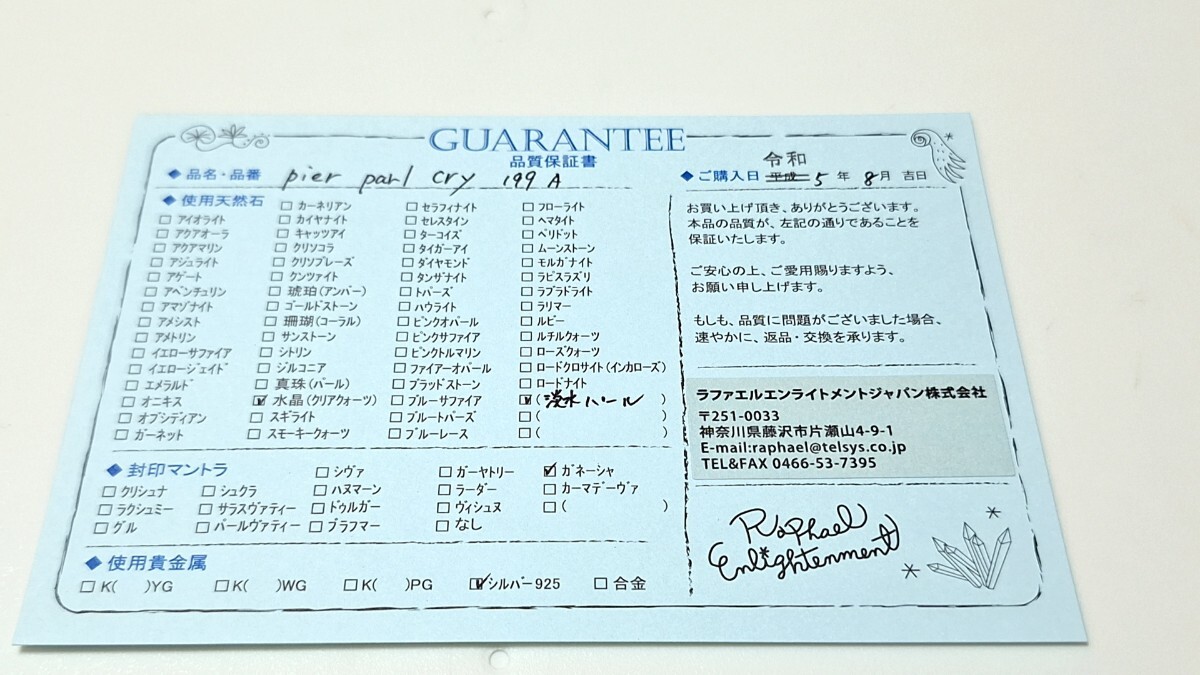 GUARANTEE
品質保証書
◆品名・品番 pier parl cry 199 A
令和
◆ご購入日 平成 5 年 8月 吉日
◆使用天然石
□アイオライト
□アクアオーラ
□アクアマリン
□アジュライト
□アゲート
□アベンチュリン
□アマゾナイト
□アメシスト
□アメトリン
□イエローサファイア
□イエロージェイド
□エメラルド
□オニキス
□オブシディアン
□ガーネット
□カーネリアン
□カイヤナイト
□キャッツアイ
□クリソコラ
□クリソプレーズ
□クンツァイト
□琥珀(アンバー)
□ゴールドストーン
□珊瑚(コーラル)
□サンストーン
□シトリン
□ジルコニア
□真珠(パール)
☑水晶(クリアクォーツ)
□スギライト
□スモーキークォーツ
□セラフィナイト
□セレスタイン
□ターコイズ
□タイガーアイ
□ダイヤモンド
□タンザナイト
□トパーズ
□ハウライト
□ピンクオパール
□ピンクサファイア
□ピンクトルマリン
□ファイアーオパール
□ブラッドストーン
□ブルーサファイア
□ブルートパーズ
□ブルーレース
□フローライト
□ヘマタイト
□ペリドット
□ムーンストーン
□モルガナイト
□ラピスラズリ
□ラブラドライト
□ラリマー
□ルビー
□ルチルクォーツ
□ローズクォーツ
□ロードクロサイト(インカローズ)
□ロードナイト
☑(淡水パール )
□( )
□( )
◆封印マントラ
□クリシュナ
□ラクシュミー
□グル
□シュクラ
□サラスヴァティー
□パールヴァティー
□シヴァ
□ハヌマーン
□ドゥルガー
□ブラフマー
□ガーヤトリー
□ラーダー
□ヴィシュヌ
□なし
☑ガネーシャ
□カーマデーヴァ
□( )
◆使用貴金属
□K( )YG □K( )WG □K( )PG ☑シルバー925 □合金
お買い上げ頂き、ありがとうございます。
本品の品質が、左記の通りであることを
保証いたします。
ご安心の上、ご愛用賜りますよう、
お願い申し上げます。
もしも、品質に問題がございました場合、
速やかに、返品・交換を承ります。
ラファエルエンライトメントジャパン株式会社
〒251-0033
神奈川県藤沢市片瀬山4-9-1
E-mail:raphael@telsys.co.jp
TEL&FAX 0466-53-7395
Raphael
Enlightenment